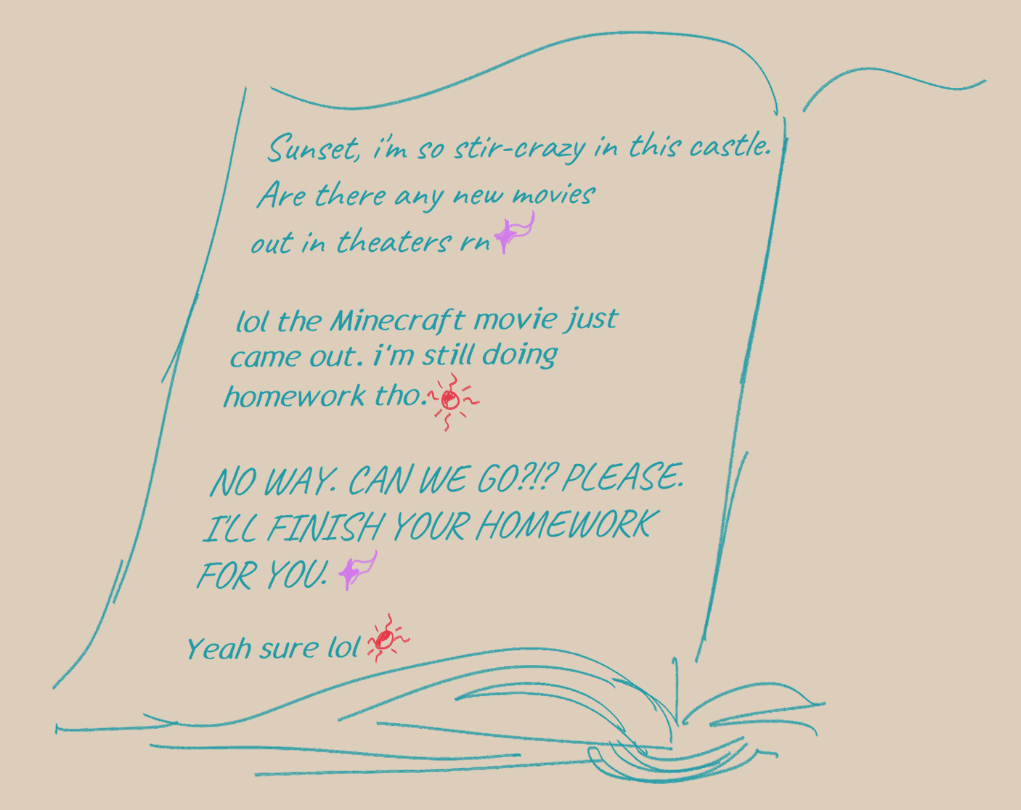 Sunset, i'm so stir-crazy in this castle.
Are there any new movies
out in theaters rn
lol the Minecraft movie just
came out. i'm still doing
homework tho.
NO WAY. CAN WE GO?!? PLEASE.
I'LL FINISH YOUR HOMEWORK
FOR YOU.
Yeah sure lol